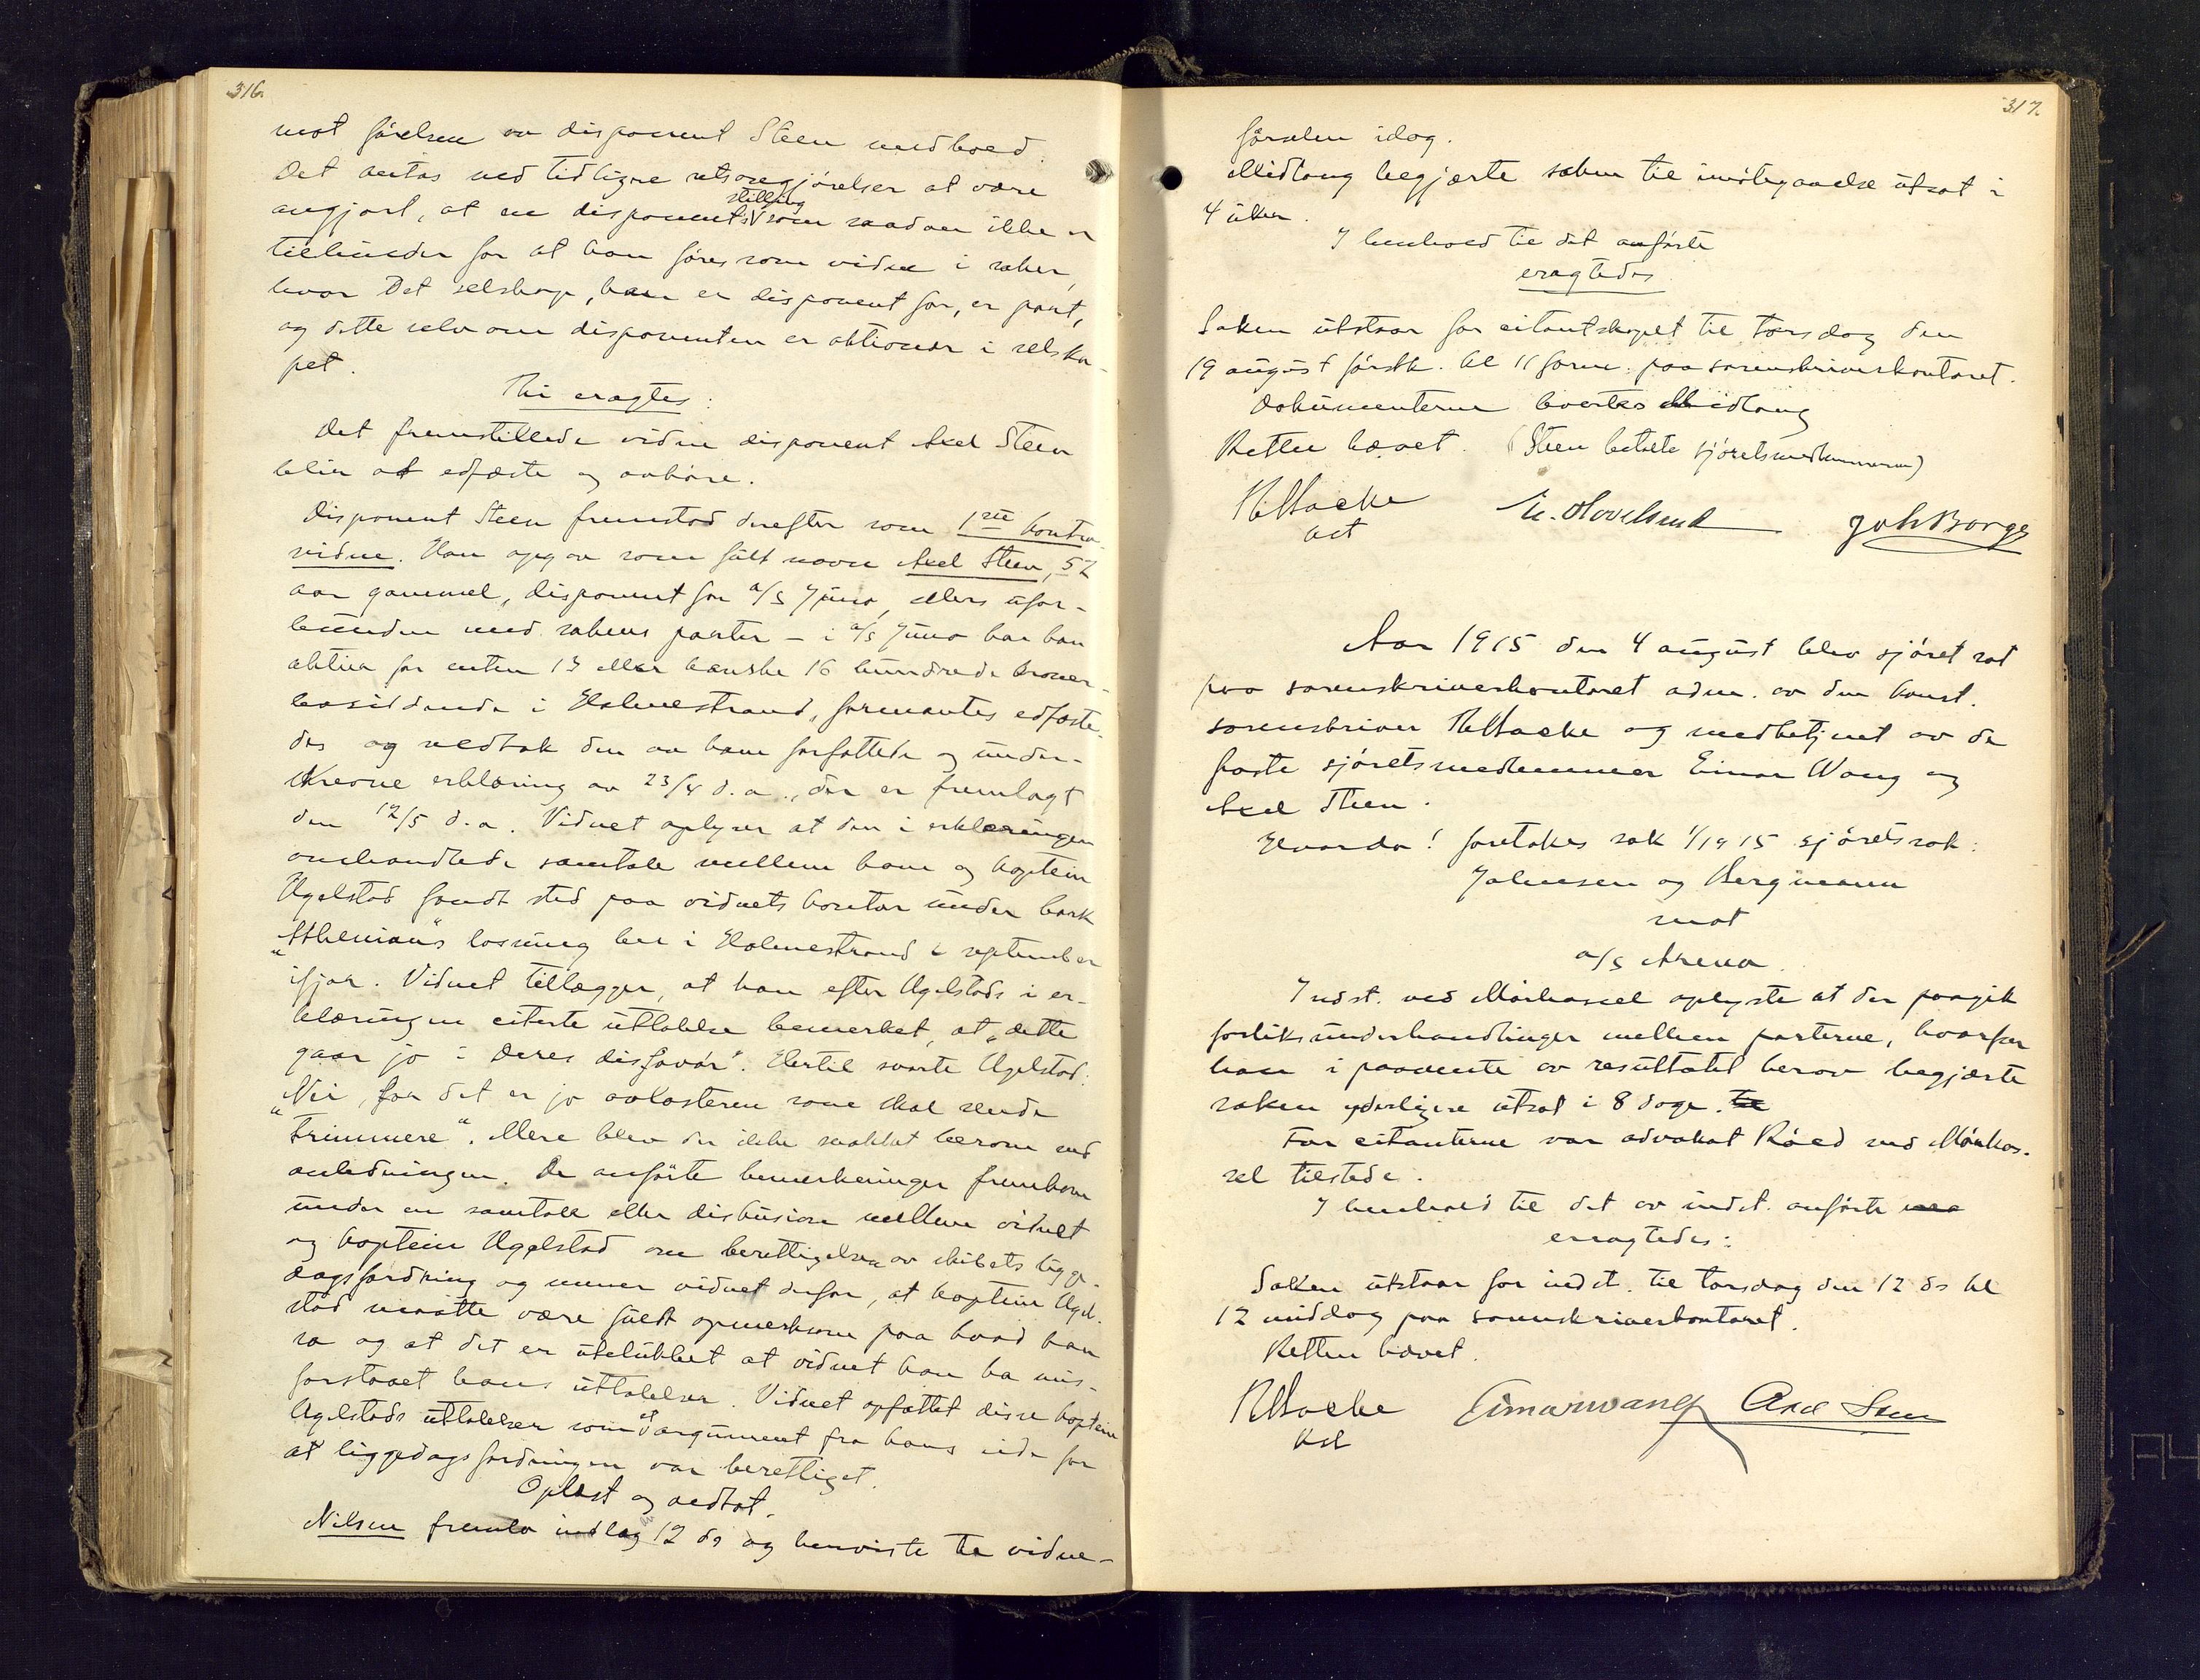 316.
mot førelsen av disponent Steen medhold.
Det antas ved tidligere retsavgjørelser at være
avgjort, at en disponents stilling som saadan ikke er
tilhinder for at han føres som vidne i saker,
hvor det selskap, han er disponent for, er part,
og dette selv om disponenten er aktionær i selska-
pet.
Thi eragtes:
Det fremstillede vidne disponent Axel Steen
blir at edfæste og avhøre.
Disponent Steen fremstod derefter som 1ste kontra-
vidne. Han opgav som fuldt navn Axel Steen, 52
aar gammel, disponent for a/s Juno, ellers ufor-
bunden med sakens parter – i a/s Juno har han
aktier for enten 13 eller kanske 16 hundrede kroner –
bosiddende i Holmestrand, formantes edfæste-
des og vedtok den av ham forfattede og under-
skrevne erklæring av 23/4 d.a., der er fremlagt
den 12/5 d.a. Vidnet oplyser at den i erklæringen
omhandlede samtale mellem ham og kaptein
Ugelstad fandt sted paa vidnets kontor under bark
"Athenian"s losning her i Holmestrand i september
ifjor. Vidnet tillægger, at han efter Ugelstads i er-
klæringen citerte uttalelse bemerket, at "dette
gaar jo i Deres disfavør". Hertil svarte Ugelstad:
"Nei, for det er jo avlasteren som skal sende
trimmere". Mere blev der ikke snakket herom ved
anledningen. De anførte bemerkninger fremkom
under en samtale eller diskusion mellem vidnet
og kaptein Ugelstad om berettigelsen av skibets ligge-
dagsfordring og mener vidnet derfor, at kaptein Ugel-
stad maatte være fuldt opmerksom paa hvad han
sa og at det er utelukket at vidnet kan ha mis-
forstaaet hans uttalelser. Vidnet opfattet disse kaptein
Ugelstads uttalelser som et argument fra hans side for
at liggedagsfordringen var berettiget.
Oplæst og vedtat.
Nilsen fremla indlæg 12 ds og henviste til vidne-
317.
førselen idag.
Midtang begjærte saken til imøtegaaelse utsat i
4 uker.
I henhold til det anførte
eragtedes
Saken utstaar for citantskapet til torsdag den
19 august førstk. kl 11 form. paa sorenskriverkontoret.
Dokumenterne leveres Midtang
Retten hævet. (Steen betalte sjøretsmedlemmerne)
kst
Joh Borge
Aar 1915 den 4 august blev sjøret sat
paa sorenskriverkontoret adm. av den konst.
sorenskriver Macke og medbetjent av de
faste sjøretsmedlemmer Einar Wang og
Axel Steen.
Hvorda! foretakes sak 1/1915 sjøretssak:
Johnsen og Bergmann
mot
a/s Arena.
Indst. ved Mørkassel oplyste at der paagik
forliksunderhandlinger mellem parterne, hvorfor
han i paavente av resultatet herav begjærte
saken yderligere utsat i 8 dage.
For citanterne var advokat Røed ved Mørkas-
sel tilstede.
I henhold til det av indst. anførte
eragtedes:
Saken utstaar for indst. til torsdag den 12 ds kl
12 middag paa sorenskriverkontoret.
Retten hævet.
Macke Einar Wang Axel Steen
kst